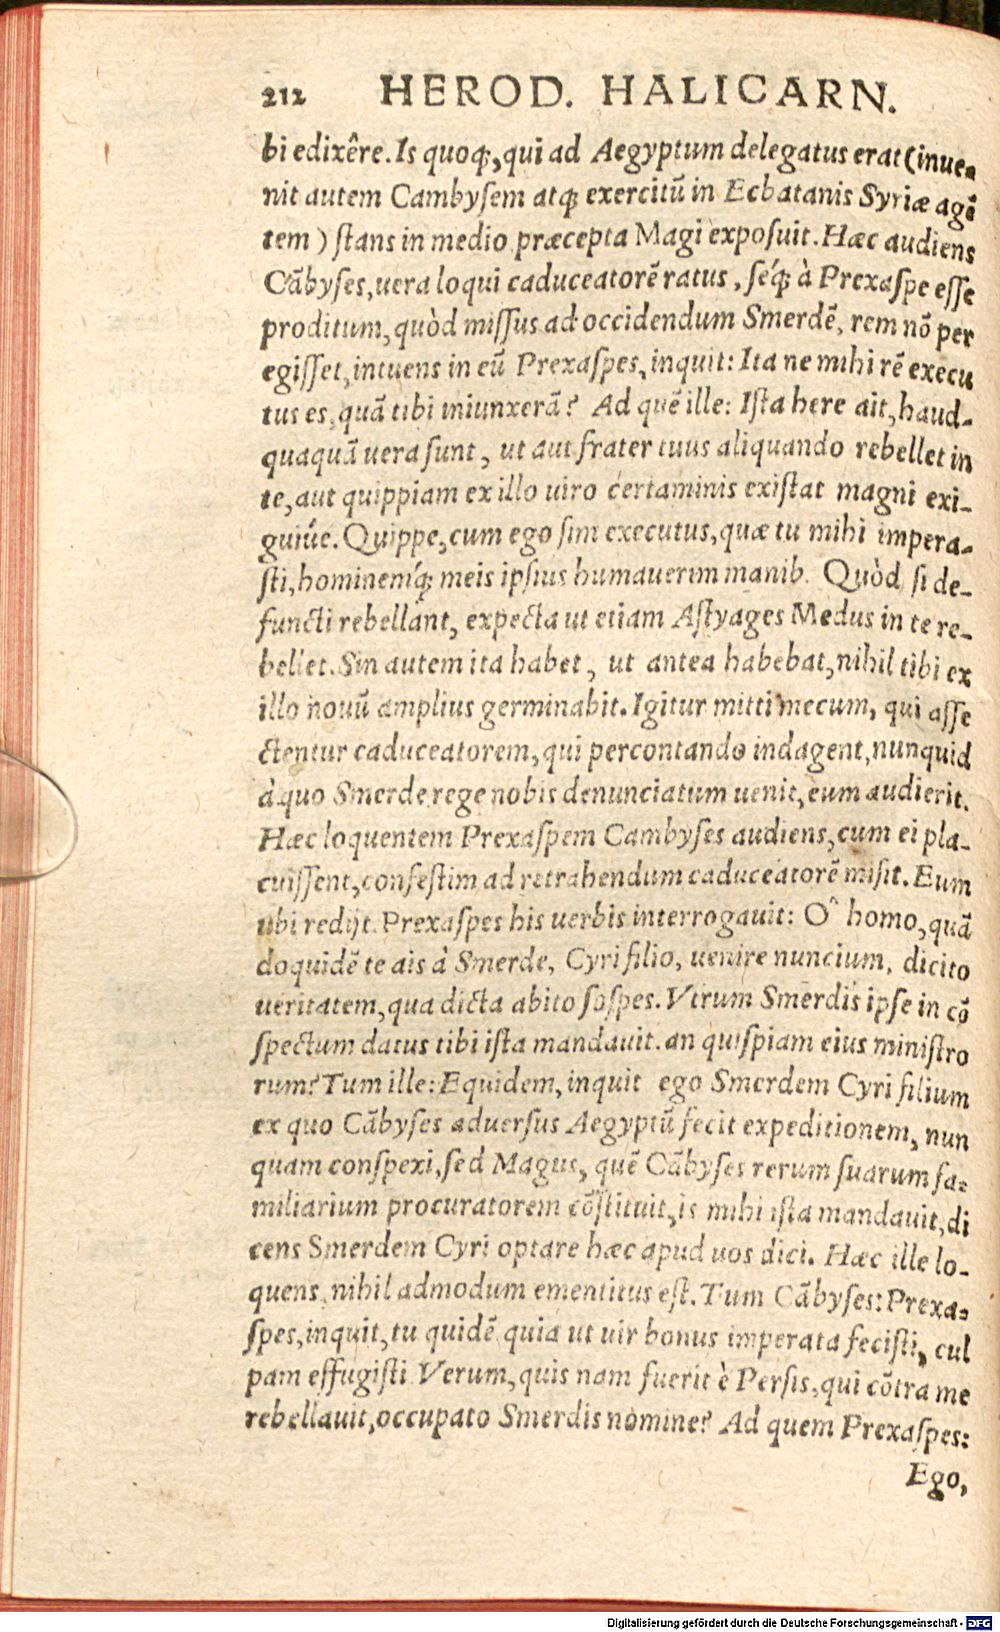 212 HEROD. HALICARN.
bi edixêre. Is quoq;, qui ad Aegyptum delegatus erat (inue-
nit autem Cambysem atq; exercitū in Ecbatanis Syriæ agē
tem) stans in medio præcepta Magi exposuit. Hæc audiens
Cābyses, uera loqui caduceatorē ratus, seq́; à Prexaspe esse
proditum, quòd missus ad occidendum Smerdē, rem nō per
egisset, intuens in eū Prexaspes, inquit: Ita ne mihi rē execu
tus es, quā tibi iniunxerā? Ad quē ille: Ista here ait, haud-
quaquā uera sunt, ut aut frater tuus aliquando rebellet in
te, aut quippiam ex illo uiro certaminis existat magni exi-
guiúe. Quippe, cum ego sim executus, quæ tu mihi impera-
sti, hominemq́; meis ipsius humauerim manib. Quòd si de-
functi rebellant, expecta ut etiam Astyages Medus in te re-
bellet. Sin autem ita habet, ut antea habebat, nihil tibi ex
illo nouū amplius germinabit. Igitur mitti mecum, qui asse
ctentur caduceatorem, qui percontando indagent, nunquid
à quo Smerde rege nobis denunciatum uenit, eum audierit.
Hæc loquentem Prexaspem Cambyses audiens, cum ei pla-
cuissent, confestim ad retrahendum caduceatorē misit. Eum
ubi redijt. Prexaspes his uerbis interrogauit: O^ homo, quā
doquidē te ais à Smerde, Cyri filio, uenire nuncium, dicito
ueritatem, qua dicta abito sospes. Vtrum Smerdis ipse in cō
spectum datus tibi ista mandauit. an quispiam eius ministro
rum? Tum ille: Equidem, inquit ego Smerdem Cyri filium
ex quo Cābyses aduersus Aegyptū fecit expeditionem, nun
quam conspexi, sed Magus, quē Cābyses rerum suarum fa-
miliarium procuratorem cōstituit, is mihi ista mandauit, di
cens Smerdem Cyri optare hæc apud uos dici. Hæc ille lo-
quens, nihil admodum ementitus est. Tum Cābyses: Prexa-
spes, inquit, tu quidē quia ut uir bonus imperata fecisti, cul
pam effugisti Verum, quis nam fuerit è Persis, qui cōtra me
rebellauit, occupato Smerdis nomine? Ad quem Prexaspes:
Ego,
Digitalisierung gefördert durch die Deutsche Forschungsgemeinschaft - DFG